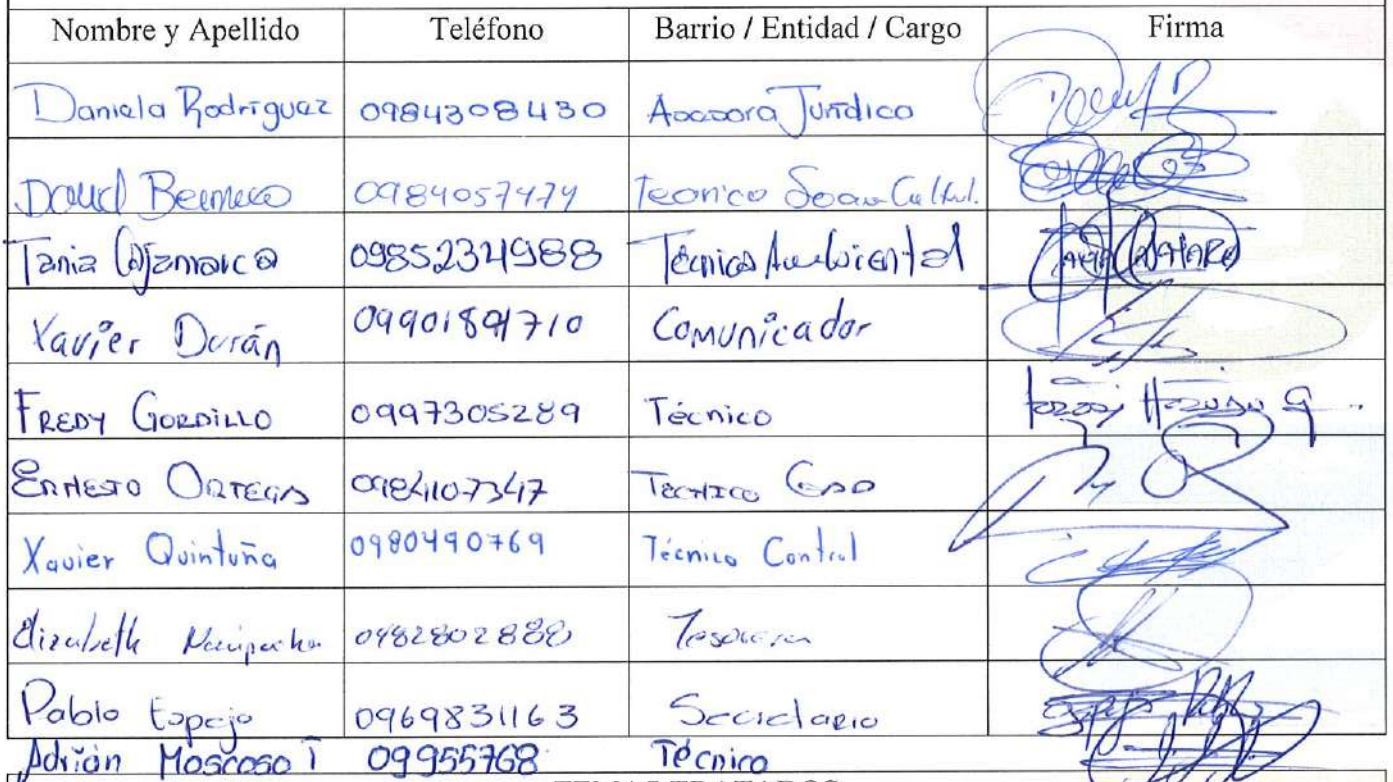 Nombre y Apellido Teléfono Barrio / Entidad / Cargo Firma
Daniela Rodríguez 0984308430 Asesora Jurídico
David 0984057479 Tecnico
Tania Cajamarca 0985234988 Técnica Ambiental TANIA CAJAMARCA
Xavier Durán Comunicador
FREDY GORDILLO 0997305289 Técnico
ERNESTO ORTEGA 0984107347 TECNICO
Xavier Quintuña 0980490769 Técnico Control
Elizabeth 0982802888 Tesorera
Pablo Espejo 0969831163 Secretario
Adrián Moscoso T 09955768 Técnico
TEMAS TRATADOS